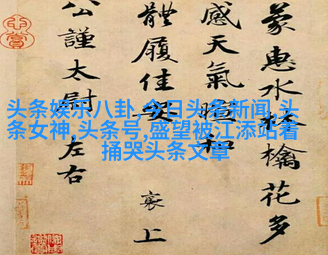 蒙惠水林檎花多
感天氣暄和
體履佳安 襄上
公謹太尉左右
头条娱乐八卦,今日头条新闻,头
条女神,头条号,盛望被江添站着
捅哭头条文章